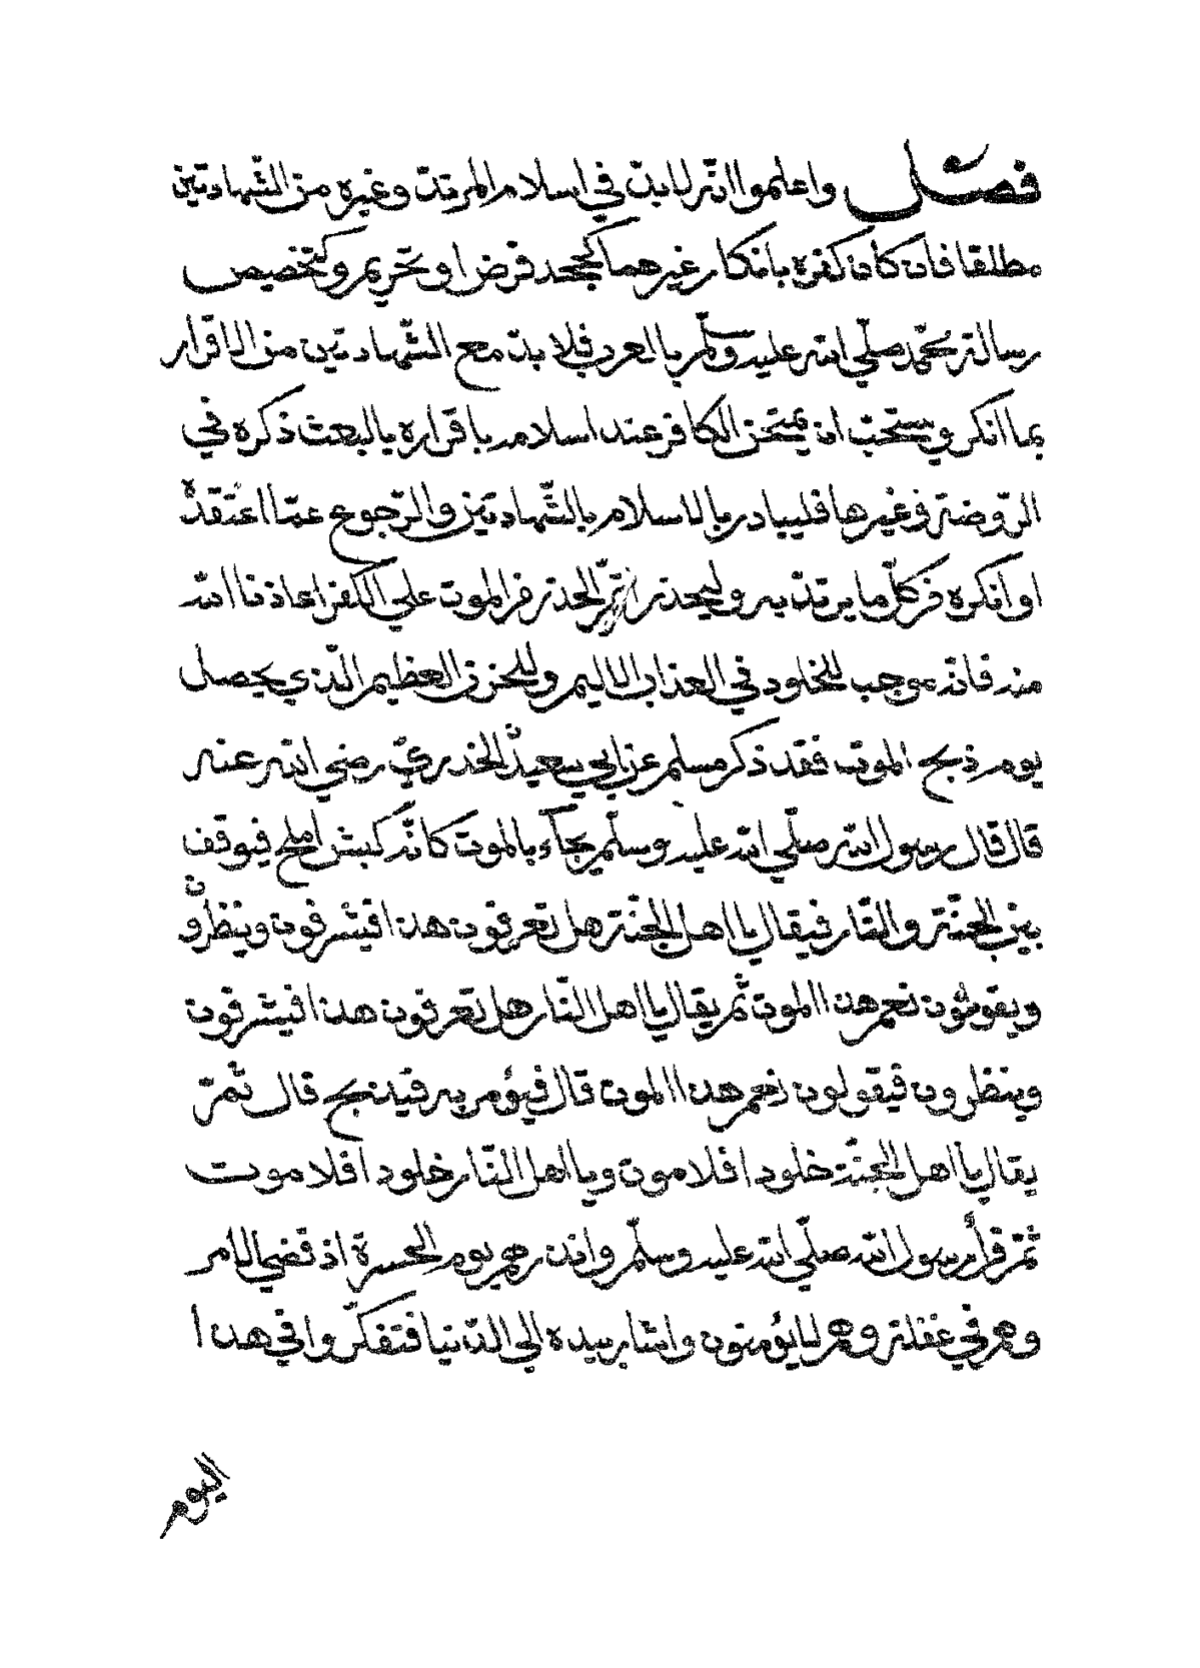 فصل واعلموا انّه لا بدّ في اسلام المرتدّ وغيره من الشّهادتين
مطلقا فان كان كفره بانكار غيرهما كجحد فرض او تحريم وكتخصيص
رسالة محمّد صلّي الله عليه وسلّم بالعرب فلا بدّ مع الشّهادتين من الاقرار
بما انكر ويستحبّ ان يمتحن الكافر عند اسلامه باقراره بالبعث ذكره في
الرّوضة وغيرها فليبادر بالاسلام بالشّهادتين والرّجوع عمّا اعتقدهٔ
او انكره من كلّ ما يرتدّ به وليحذر ثمّ الحذر من الموت علي الكفر اعاذنا الله
منه فانّه موجب للخلود في العذاب الاليم وللحزن العظيم الّذي يحصل
يوم ذبح الموت فقد ذكر مسلم عن ابي سعيد الخدريّ رضي الله عنه
قال قال رسول الله صلّي الله عليه وسلّم يجآء بالموت كانّه كبش املح فيوقف
بين الجنّة والنّار فيقال يا اهل الجنّة هل تعرفون هذا فيشرفون وينظرون
ويقولون نعم هذا الموت ثم يقال يا اهل النّار هل تعرفون هذا فيشرفون
وينظرون فيقولون نعم هذا الموت قال فيؤمر به فيذبح قال ثمّ
يقال يا اهل الجنّة خلودا فلا موت ويا اهل النّار خلودا فلا موت
ثمّ قرأ رسول الله صلّي الله عليه وسلّم وانذرهم يوم الحسرة اذ قضي الأمر
وهم في غفلة وهم لا يؤمنون واشار بيده الي الدّنيا فتفكّروا في هذا
اليوم